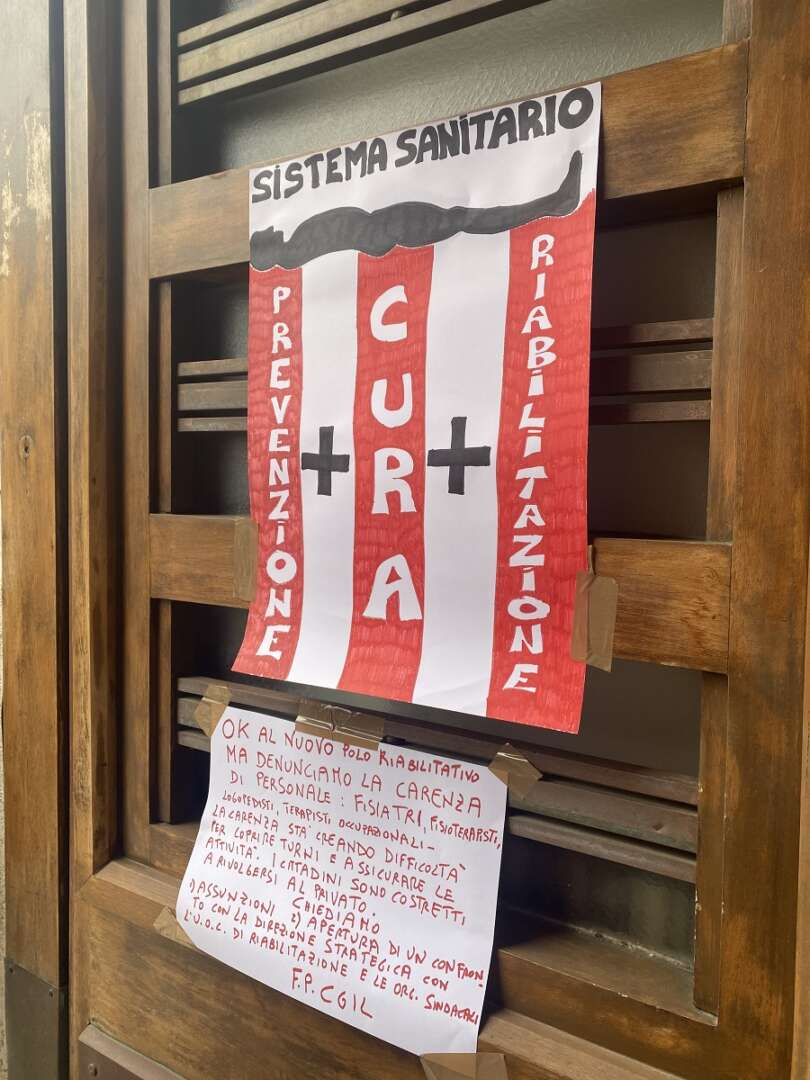 SISTEMA SANITARIO
PREVENZIONE
+
CURA
+
RIABILITAZIONE
OK AL NUOVO POLO RIABILITATIVO
MA DENUNCIAMO LA CARENZA
DI PERSONALE: FISIATRI, FISIOTERAPISTI,
LOGOPEDISTI, TERAPISTI OCCUPAZIONALI-
LA CARENZA STA' CREANDO DIFFICOLTA'
PER COPRIRE TURNI E ASSICURARE LE
ATTIVITA'. I CITTADINI SONO COSTRETTI
A RIVOLGERSI AL PRIVATO.
CHIEDIAMO
1) ASSUNZIONI 2) APERTURA DI UN CONFRON-
TO CON LA DIREZIONE STRATEGICA CON
L'U.O.C. DI RIABILITAZIONE E LE ORG. SINDACALI
F.P. CGIL